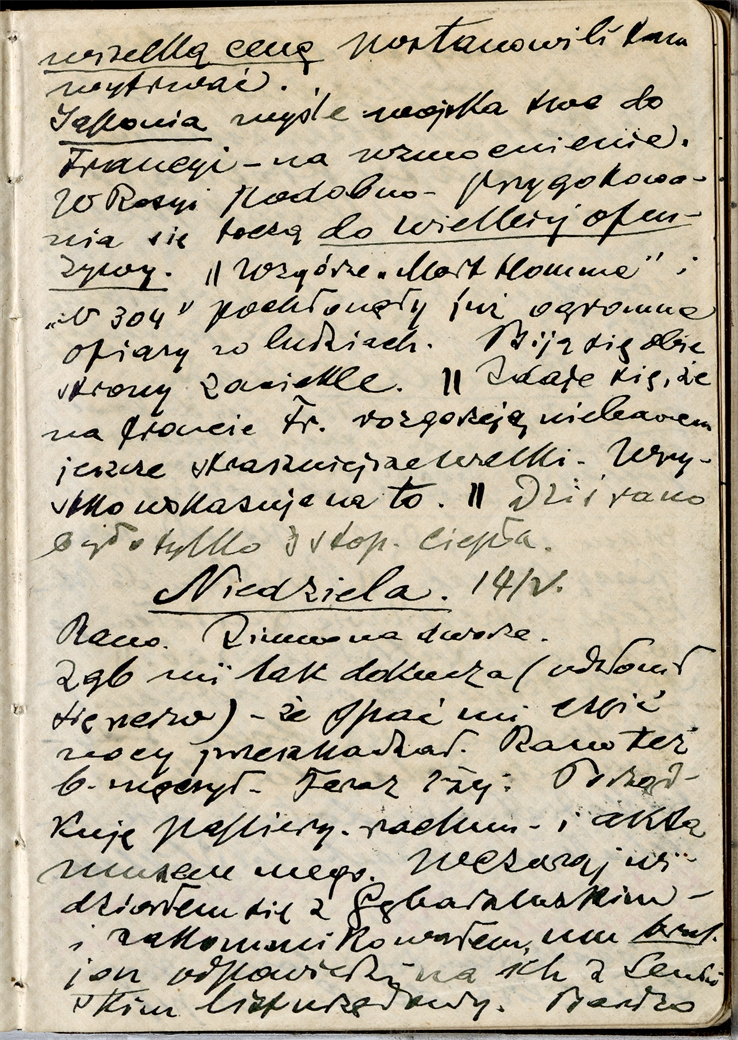 wszelką cenę postanowili tam
wytrwać.
Japonia wyśle wojska swe do
Francyi – na wzmocnienie.
W Rosyi podobno – przygotowa-
nia się toczą do wielkiej ofen-
zywy. || Wzgórze „Mort Homme" i
„N 304" pochłonęły już ogromne
ofiary w ludziach. Biją się obie
strony zaciekle. || Zdaje się, że
na froncie fr. rozgorzeją niebawem
jeszcze straszniejsze walki. Wszy-
stko wskazuje na to. || Dziś rano
było tylko 3 stop. ciepła.
Niedziela. 14/V.
Rano. Zimno na dworze.
Ząb mi tak dokucza (odsłonił
się nerw) – że spać mi część
nocy przeszkadzał. Rano też
b. męczył. Teraz lżej. Porząd-
kuję papiery – rachun – i akta
muzealnego. Wczoraj wi-
działem się z
i zakomunikowałem mu
jon odpowiedzi na ich z
skim list urzędowy. Bardzo